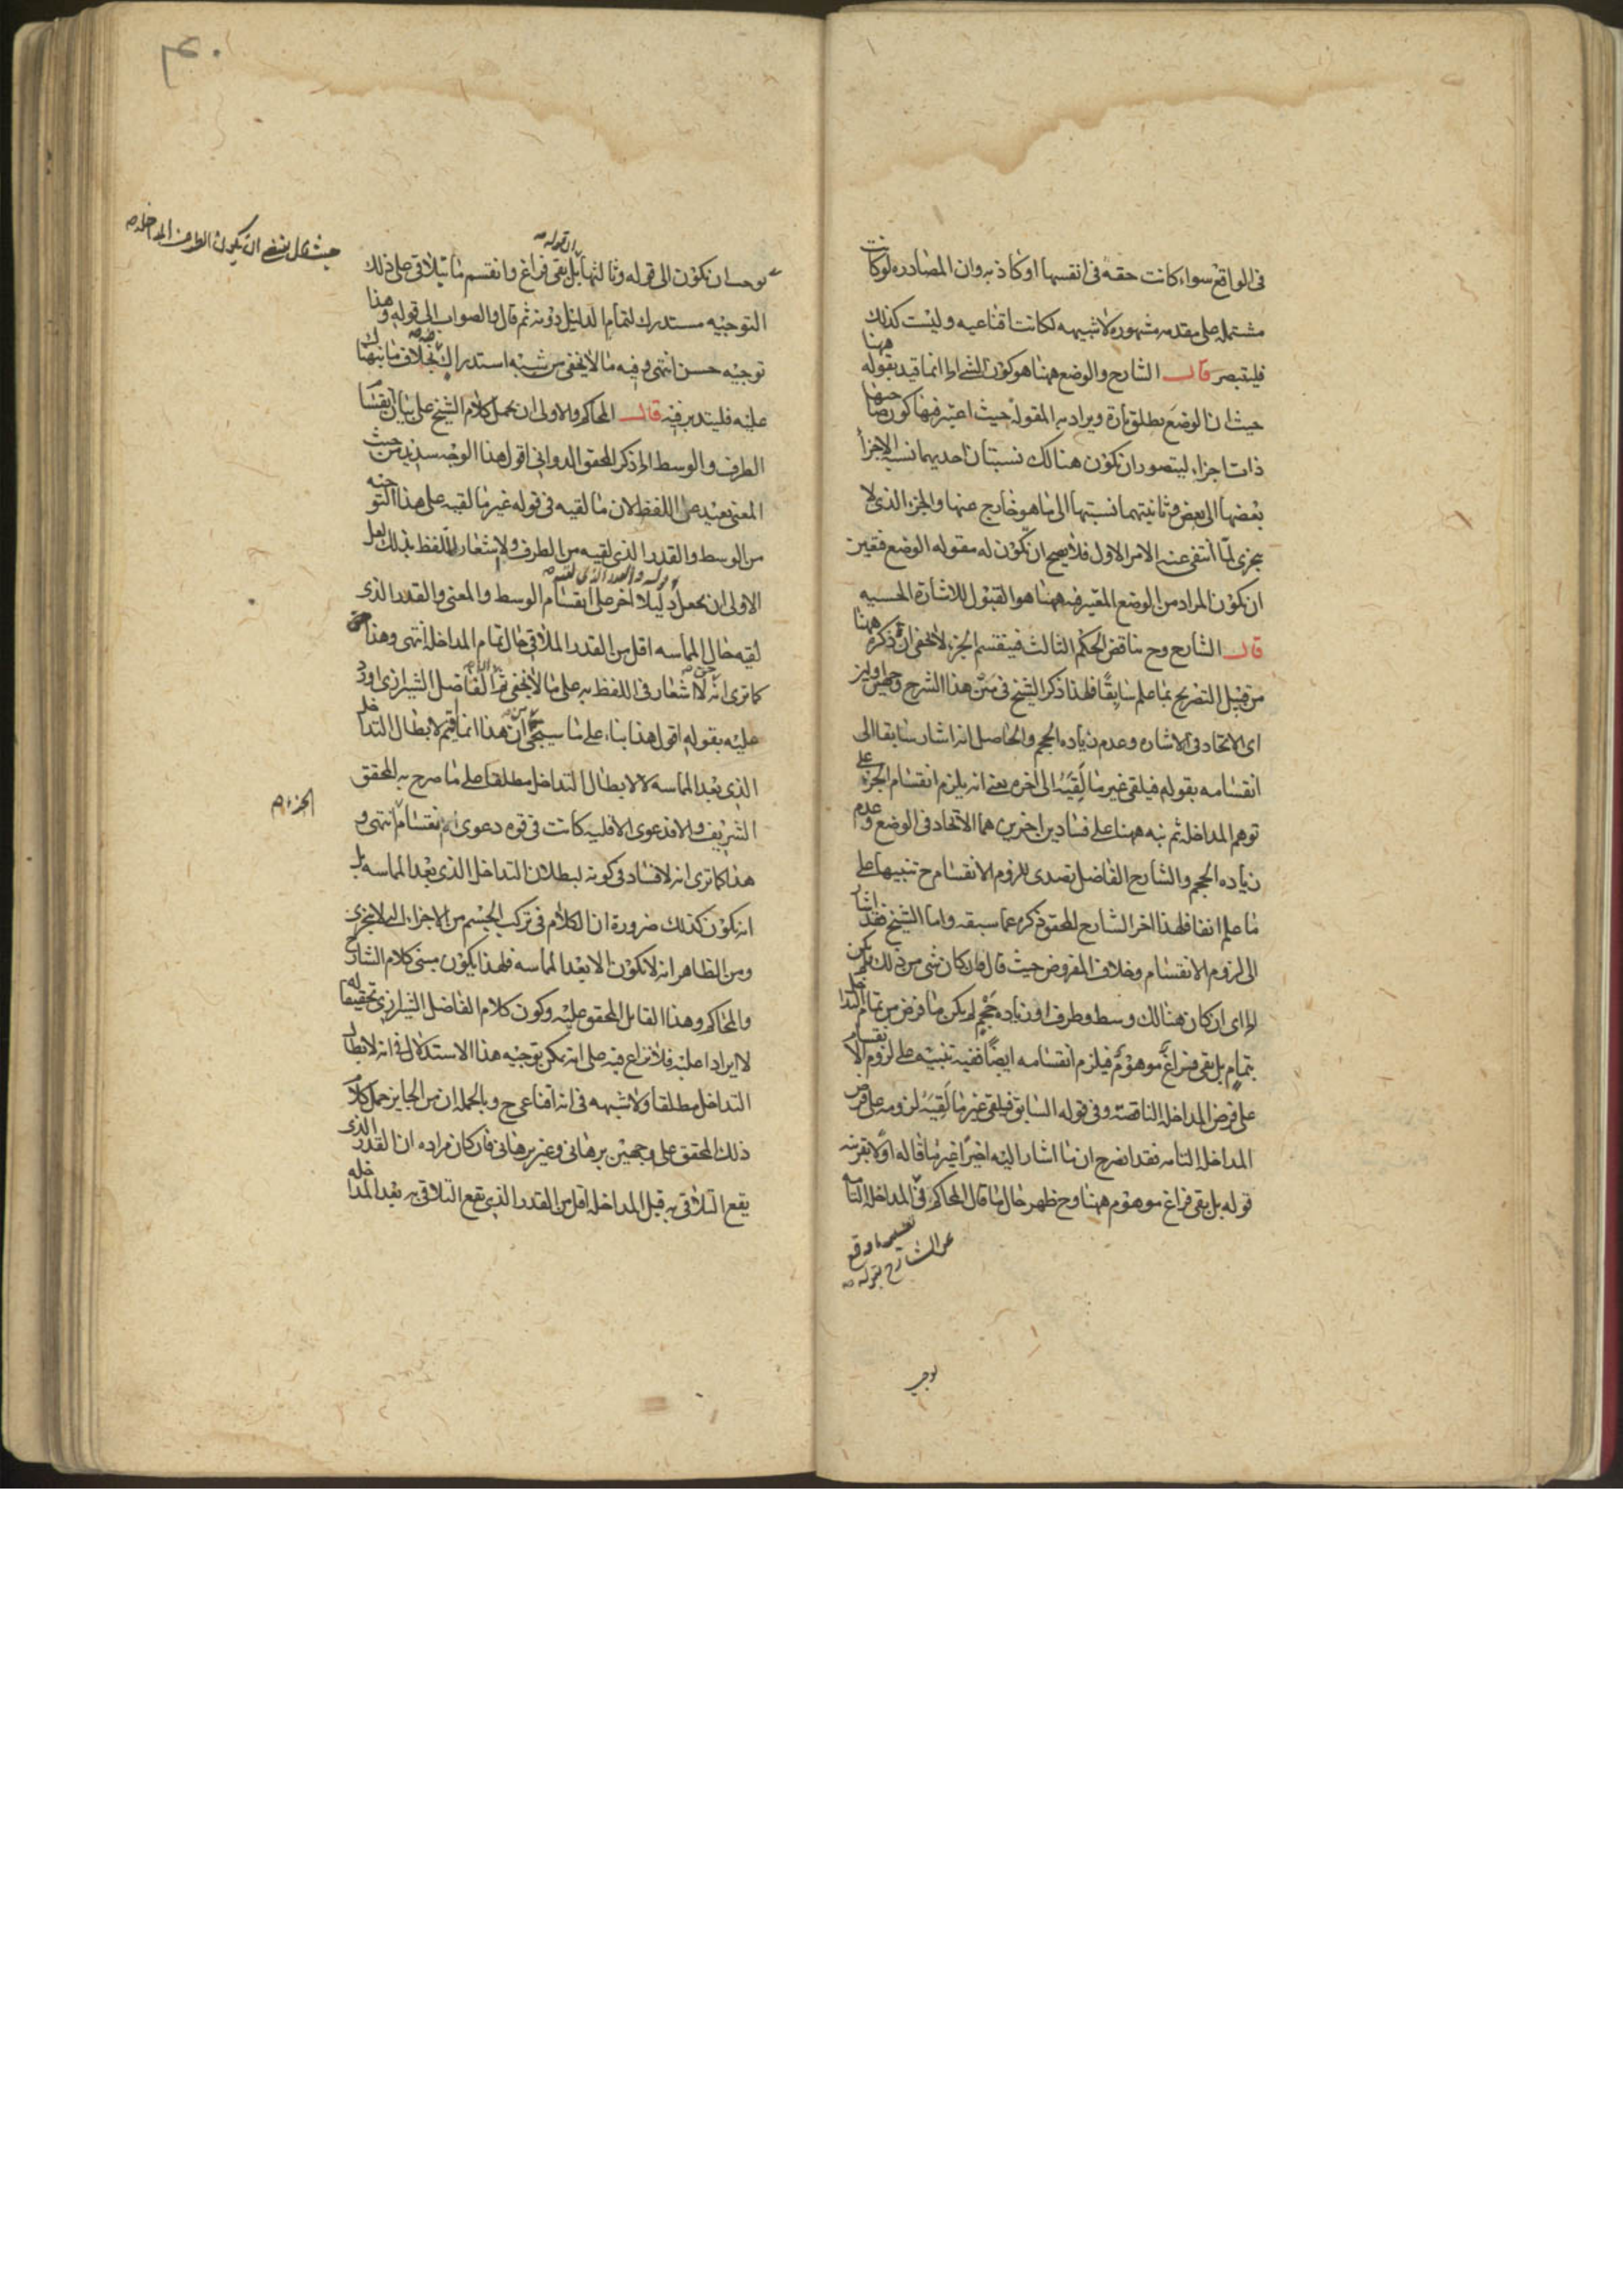 فى الواقع سواء كانت حقه فى انفسها او كاذبه وان المصادره لو كانت
مشتمله على مقدمه مشهوره لا شبيهه لكانت اقناعيه وليست كذلك
فليتبصر قال الشارح والوضع ههنا هو كون الشئ انما قيد بقوله ههنا
حيث ان الوضع يطلق تارة ويراد به المقولة حيث اعتبر فيها كون صاحبها
ذات اجزاء ليتصور ان يكون هنالك نسبتان احديهما نسبه الاجزأ
بعضها الى بعض وثانيتهما نسبتها الى ما هو خارج عنها والجزء الذى لا
يتجزى لمّا انتفى عنه الامر الاول فلا يصح ان يكون له مقوله الوضع فتعين
ان يكون المراد من الوضع المعتبر فيه ههنا هو القبول للاشارة الحسيه
قال الشارح وح يناقض الحكم الثالث فينقسم الجزء لا يخفى ان ذكره ههنا
من قبيل التصريح بما علم سابقًا فلهذا ذكر الشيخ فى متن هذا الشرح
اى الاتحاد فى الاشاره وعدم زياده الحجم والحاصل انه اشار سابقا الى
انقسامه بقوله فيلقى غير ما لَقِيَهُ الى اخره يعنى انه يلزم انقسام الجزء على
توهم المداخله ثم نبه ههنا على فسادين اخرين هما الاتحاد فى الوضع وعدم
زياده الحجم والشارح الفاضل تصدى للزوم الانقسام ح تنبيها على
ما علم انفا فلهذا اخر الشارح المحقق ذكره عما سبقه واما الشيخ فقد اشار
الى لزوم الانقسام وخلاف المفروض حيث قال فان كان شى من ذلك لم يكن
اى ان كان هنالك وسط وطرف او زياده حجم لم يكن ما فرض من تمام التداخل
بتمام بل بقى فراغ موهوم فيلزم انقسامه ايضًا ففيه تنبيه على لزوم الانقسام
على فرض المداخله الناقصة وفى قوله السابق فيلقى غير ما لَقِيَهُ لزومه على فرض
المداخله التامه فقد اتضح ان ما اشار اليه اخيرًا غير ما قاله اولا بقرينه
قوله بل بقى فراغ موهوم ههنا وح ظهر حال ما قال المحاكم فى المداخله التامه
عن الشارح بقوله
توجيه
ان قوله
ان يكون الى قوله وثالثها بل بقى فراغ وانقسم ما يتلاقى على ذلك
التوجيه مستدرك لتمام الدليل دونه ثم قال والصواب الى قوله وهذا
توجيه حسن انتهى وفيه ما لا يخفى من شبه استدراك بخلاف ما نبهناك
عليه فليتدبر فيه قال المحاكم والاولى ان يحمل كلام الشيخ على بيان انقسام
الطرف والوسط ذكر المحقق الدوانى اقول هذا الوجه سديد من حيث
المعنى بعيد عن اللفظ لان ما لقيه فى قوله غير ما لقيه على هذا التوجيه
من الوسط والقدر الذى لقيه من الطرف ولا اشعار للفظ بذلك بل لعل
الاولى ان يجعل دليلا اخر على انقسام الوسط والمعنى والقدر الذى
لقيه حال المماسه اقل من القدر الملاقى حال تمام المداخله انتهى وهذا
كما ترى انه لا اشعار فى اللفظ به على ما لا يخفى ثم الفاضل الشيرازى اورد
عليه بقوله اقول هذا بناء على ما سيجئ ان هذا انما قيم لابطال التداخل
الذى بعد المماسه لا لابطال التداخل مطلقا على ما صرح به المحقق
الشريف والا فدعوى الاقليه كانت فى قوه دعوى انقسام انتهى و
هذا كما ترى انه لا فساد فى كونه لبطلان التداخل الذى بعد المماسه بل
انه يكون كذلك ضرورة ان الكلام فى تركب الجسم من الاجزاء التى لا يتجزى
ومن الظاهر انه لا يكون الا بعد المماسه فلهذا يكون مبنى كلام الشارح
والمحاكم وهذا القابل المحقق عليه وكون كلام الفاضل الشيرازى تحقيقا له
لا ايرادا عليه فلا نزاع فيه على انه يمكن توجيه هذا الاستدلال فى انه لابطال
التداخل مطلقا ولا شبهه فى انه اقناعى ح وبالجمله ان من الجايز حمل كلام
ذلك المحقق على وجهين برهانى وغير برهانى فان كان مراده ان القدر الذى
يقع التلاقى به قبل المداخله اقل من القدر الذى يقع التلاقى به بعد المداخله
الجزء